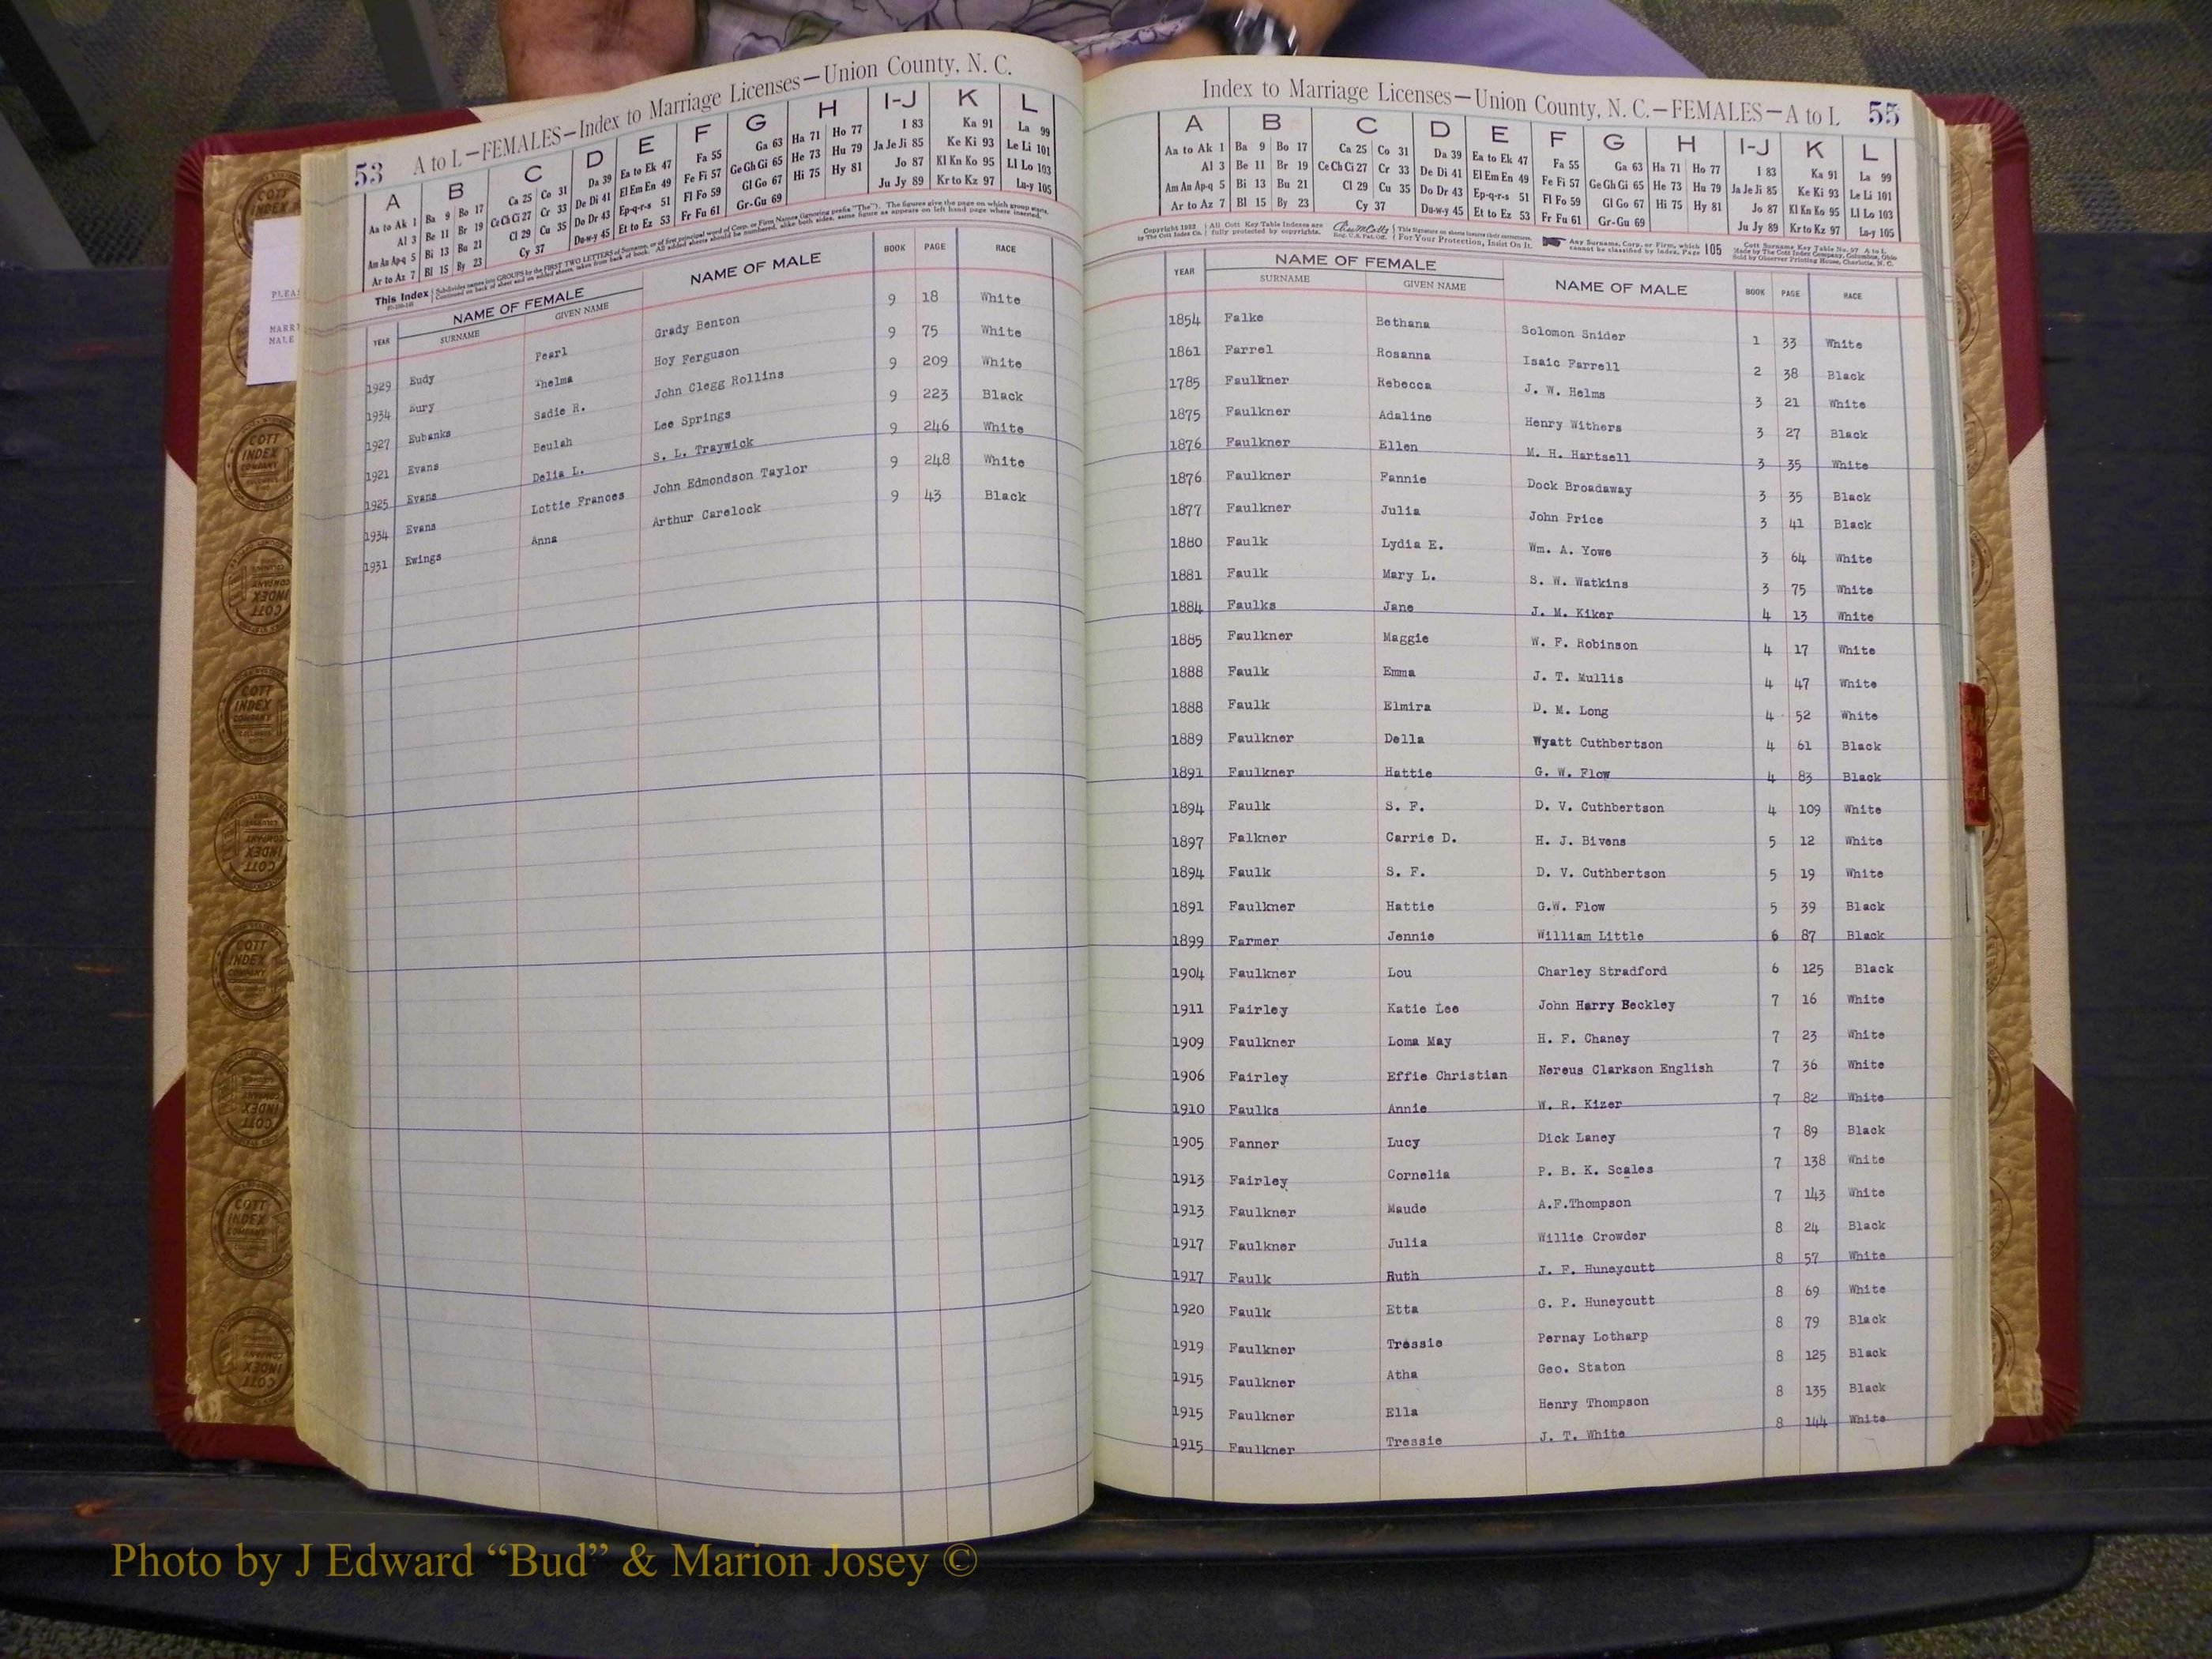 53 A to L—FEMALES—Index to Marriage Licenses—Union County, N. C.
A B C D E F G H I-J K L
Aa to Ak 1 Ba 9 Bo 17 Ca 25 Co 31 Da 39 Ea to Ek 47 Fa 55 Ga 63 Ha 71 Ho 77 I 83 Ka 91 La 99
Al 3 Be 11 Br 19 Ce Ch Ci 27 Cr 33 De Di 41 El Em En 49 Fe Fi 57 Ge Gh Gi 65 He 73 Hu 79 Ja Je Ji 85 Ke Ki 93 Le Li 101
Am An Ap-q 5 Bi 13 Bu 21 Cl 29 Cu 35 Do Dr 43 Ep-q-r-s 51 Fl Fo 59 Gl Go 67 Hi 75 Hy 81 Jo 87 Kl Kn Ko 95 Ll Lo 103
Ar to Az 7 Bl 15 By 23 Cy 37 Du-w-y 45 Et to Ez 53 Fr Fu 61 Gr-Gu 69 Ju Jy 89 Kr to Kz 97 Lu-y 105
This Index
YEAR NAME OF FEMALE NAME OF MALE BOOK PAGE RACE
SURNAME GIVEN NAME
1929 Eudy Pearl Grady Benton 9 18 White
1934 Eury Thelma Hoy Ferguson 9 75 White
1927 Eubanks Sadie R. John Clegg Rollins 9 209 White
1921 Evans Beulah Lee Springs 9 223 Black
1925 Evans Delia L. S. L. Traywick 9 246 White
1934 Evans Lottie Frances John Edmondson Taylor 9 248 White
1931 Ewings Anna Arthur Carelock 9 43 Black
Index to Marriage Licenses—Union County, N. C.—FEMALES—A to L 55
A B C D E F G H I-J K L
Aa to Ak 1 Ba 9 Bo 17 Ca 25 Co 31 Da 39 Ea to Ek 47 Fa 55 Ga 63 Ha 71 Ho 77 I 83 Ka 91 La 99
Al 3 Be 11 Br 19 Ce Ch Ci 27 Cr 33 De Di 41 El Em En 49 Fe Fi 57 Ge Gh Gi 65 He 73 Hu 79 Ja Je Ji 85 Ke Ki 93 Le Li 101
Am An Ap-q 5 Bi 13 Bu 21 Cl 29 Cu 35 Do Dr 43 Ep-q-r-s 51 Fl Fo 59 Gl Go 67 Hi 75 Hy 81 Jo 87 Kl Kn Ko 95 Ll Lo 103
Ar to Az 7 Bl 15 By 23 Cy 37 Du-w-y 45 Et to Ez 53 Fr Fu 61 Gr-Gu 69 Ju Jy 89 Kr to Kz 97 Lu-y 105
All Cott Key Table Indexes are fully protected by copyrights. For Your Protection, Insist On It. Any Surname, Corp. or Firm, which cannot be classified by index, Page 105
YEAR NAME OF FEMALE NAME OF MALE BOOK PAGE RACE
SURNAME GIVEN NAME
1854 Falke Bethana Solomon Snider 1 33 White
1861 Farrel Rosanna Isaic Farrell 2 38 Black
1785 Faulkner Rebecca J. W. Helms 3 21 White
1875 Faulkner Adaline Henry Withers 3 27 Black
1876 Faulkner Ellen M. H. Hartsell 3 35 White
1876 Faulkner Fannie Dock Broadaway 3 35 Black
1877 Faulkner Julia John Price 3 41 Black
1880 Faulk Lydia E. Wm. A. Yowe 3 64 White
1881 Faulk Mary L. S. W. Watkins 3 75 White
1884 Faulks Jane J. M. Kiker 4 13 White
1885 Faulkner Maggie W. F. Robinson 4 17 White
1888 Faulk Emma J. T. Mullis 4 47 White
1888 Faulk Elmira D. M. Long 4 52 White
1889 Faulkner Della Wyatt Cuthbertson 4 61 Black
1891 Faulkner Hattie G. W. Flow 4 83 Black
1894 Faulk S. F. D. V. Cuthbertson 4 109 White
1897 Falkner Carrie D. H. J. Bivens 5 12 White
1894 Faulk S. F. D. V. Cuthbertson 5 19 White
1891 Faulkner Hattie G.W. Flow 5 39 Black
1899 Farmer Jennie William Little 6 87 Black
1904 Faulkner Lou Charley Stradford 6 125 Black
1911 Fairley Katie Lee John Harry Beckley 7 16 White
1909 Faulkner Loma May H. F. Chaney 7 23 White
1906 Fairley Effie Christian Nereus Clarkson English 7 36 White
1910 Faulks Annie W. R. Kizer 7 82 White
1905 Fanner Lucy Dick Laney 7 89 Black
1913 Fairley Cornelia P. B. K. Scales 7 138 White
1913 Faulkner Maude A.F.Thompson 7 143 White
1917 Faulkner Julia Willie Crowder 8 24 Black
1917 Faulk Ruth J. F. Huneycutt 8 57 White
1920 Faulk Etta G. P. Huneycutt 8 69 White
1919 Faulkner Tressie Pernay Lotharp 8 79 Black
1915 Faulkner Atha Geo. Staton 8 125 Black
1915 Faulkner Ella Henry Thompson 8 135 Black
1915 Faulkner Tressie J. T. White 8 144 White
Photo by J Edward “Bud” & Marion Josey ©